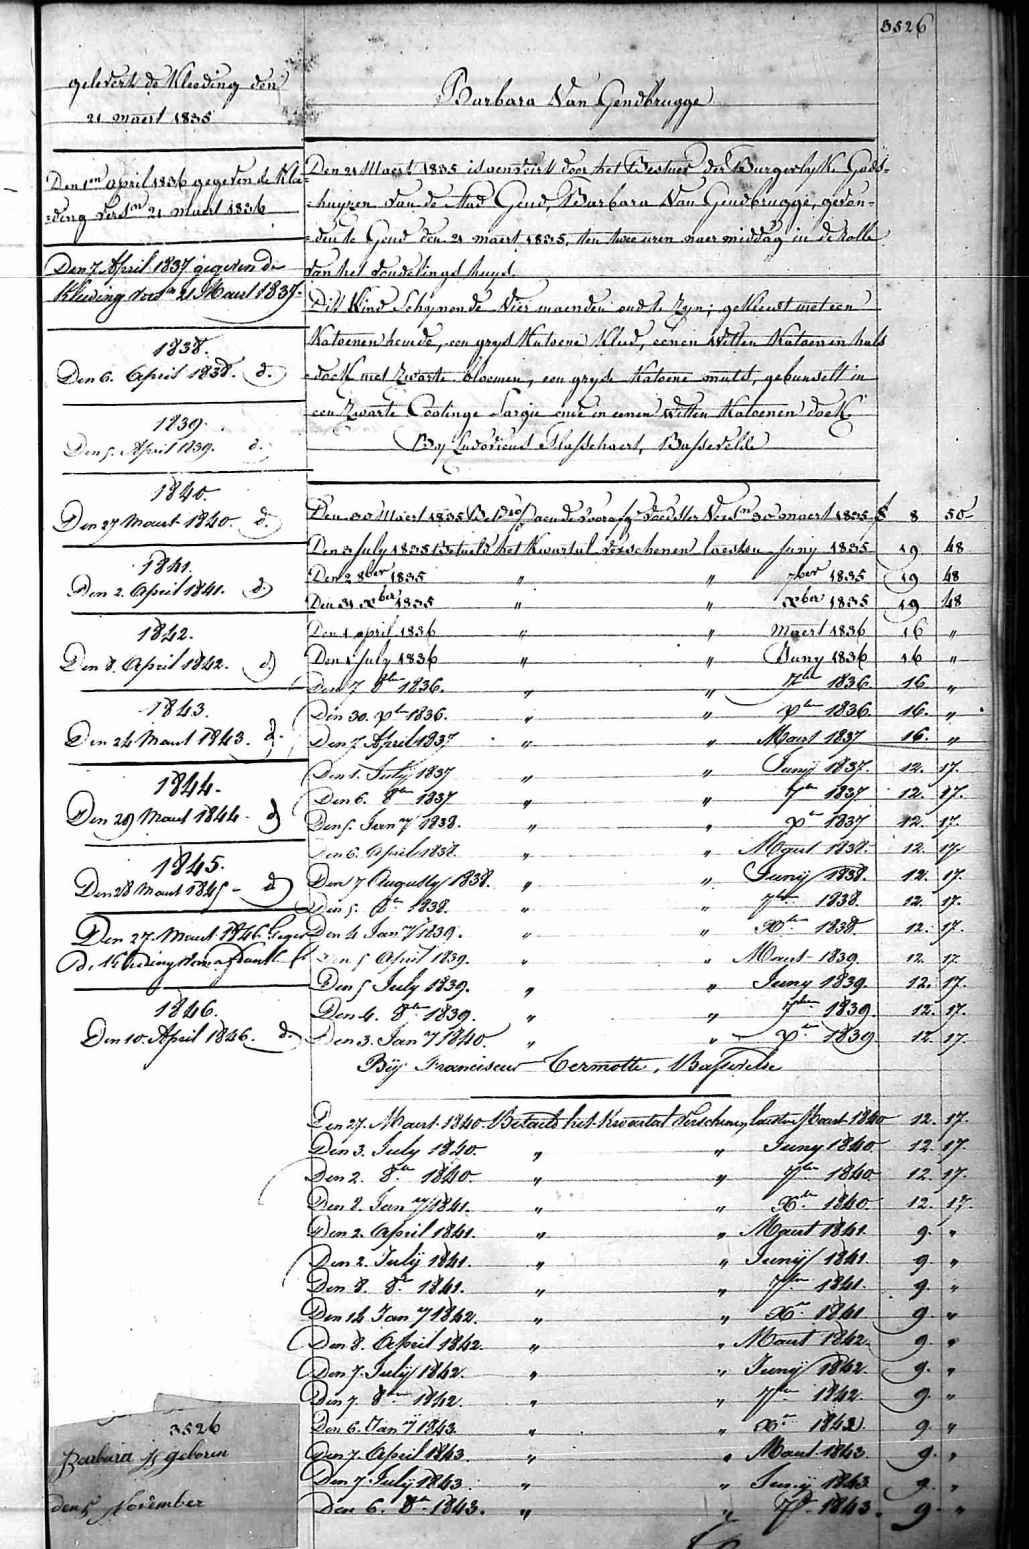 3526
gelevert de Kleeding den
21 maert 1835
Den 1en april 1836 gegeven de Klee=
=ding versn 21 maert 1836
Den 7 April 1837 gegeven de
Kleeding versn 21 Maert 1837
1838.
Den 6. April 1838. d.
1839.
Den 5. April 1839. d.
1840.
Den 27 Maert 1840. d.
1841.
Den 2. April 1841. d
1842.
Den 8. April 1842. d
1843.
Den 24 Maert 1843. d.
1844.
Den 29 Maert 1844 d
1845.
Den 28 Maert 1845 - d
Den 27. Maert 1846. Gegev
de Kleeding
1846.
Den 10. April 1846. d.
3526
Barbara is geboren
den 5 November
Barbara Van Gendbrugge
Den 21 Maert 1835 is aenveirt door het Bestuer der Burgerlyke Gods=
=huyzen van de stad Gend, Barbara Van Gendbrugge, gevon=
=den te Gend den 21 maert 1835, ten twee uren naer middag in de rolle
van het vondelingshuys.
Dit Kind schynende vier maenden oud te zyn; gekleed met een
Katoenen hemde, een grys Katoene Kleed, eenen witten Katoenen hals
=doek met zwarte bloemen, een gryse Katoene muts, gebunselt in
een zwarte Cootinge Sargie ende in eenen witten Katoenen doek
By Ludovicus Flasschaert, Bassevelde
Den 30 Maert 1835 aen de voorsz voedster versn 30 maert 1835 f 8 50
Den 3 July 1835 betaeld het Kwartael verschenen laesten Juny 1835 19 48
Den 2 8ber 1835 " " 7ber 1835 19 48
Den 31 xber 1835 " " xber 1835 19 48
Den 1 april 1836 " " Maert 1836 16 "
Den 1 July 1836 " " Juny 1836 16 "
Den 7 8ber 1836. " " 7ber 1836. 16. "
Den 30. xber 1836. " " xber 1836. 16. "
Den 7. April 1837 " " Maert 1837 16. "
Den 1. July 1837 " " Junij 1837. 12. 17.
Den 6. 8ber 1837 " " 7ber 1837 12. 17.
Den 5. Jany 1838. " " xber 1837 12. 17.
Den 6. April 1838. " " Maert 1838. 12. 17
Den 17 Augusty 1838. " " Junij 1838. 12. 17.
Den 5. 8ber 1838. " " 7ber 1838. 12. 17.
Den 4 Jany 1839. " " Xber 1838 12. 17.
Den 5 April 1839. " " Maert 1839. 12. 17.
Den 5 July 1839. " " Juny 1839. 12. 17.
Den 4. 8ber 1839. " " 7ber 1839. 12. 17.
Den 3. Jany 1840. " " xber 1839 12. 17.
Bij Franciscus Termotte, Bassevelde
Den 27. Maert 1840. Betaeld het Kwartael Verschenen laesten Maert 1840 12. 17.
Den 3. July 1840. " " Juny 1840. 12. 17.
Den 2. 8ber 1840. " " 7ber 1840. 12. 17.
Den 8. Jany 1841. " " Xber 1840. 12. 17.
Den 2. April 1841. " " Maert 1841. 9. "
Den 2. Julij 1841. " " Junij 1841. 9. "
Den 8. 8r 1841. " " 7ber 1841. 9. "
Den 14 Jany 1842. " " Xr 1841 9. "
Den 8. April 1842. " " Maert 1842. 9. "
Den 7. Julij 1842. " " Junij 1842. 9. "
Den 7. 8ber 1842. " " 7ber 1842. 9. "
Den 6. Jany 1843. " " Xr 1842 9. "
Den 7. April 1843. " " Maert 1843. 9. "
Den 7 Julij 1843. " " Junij 1843 9. "
Den 6. 8r 1843. " " 7r 1843. 9. "